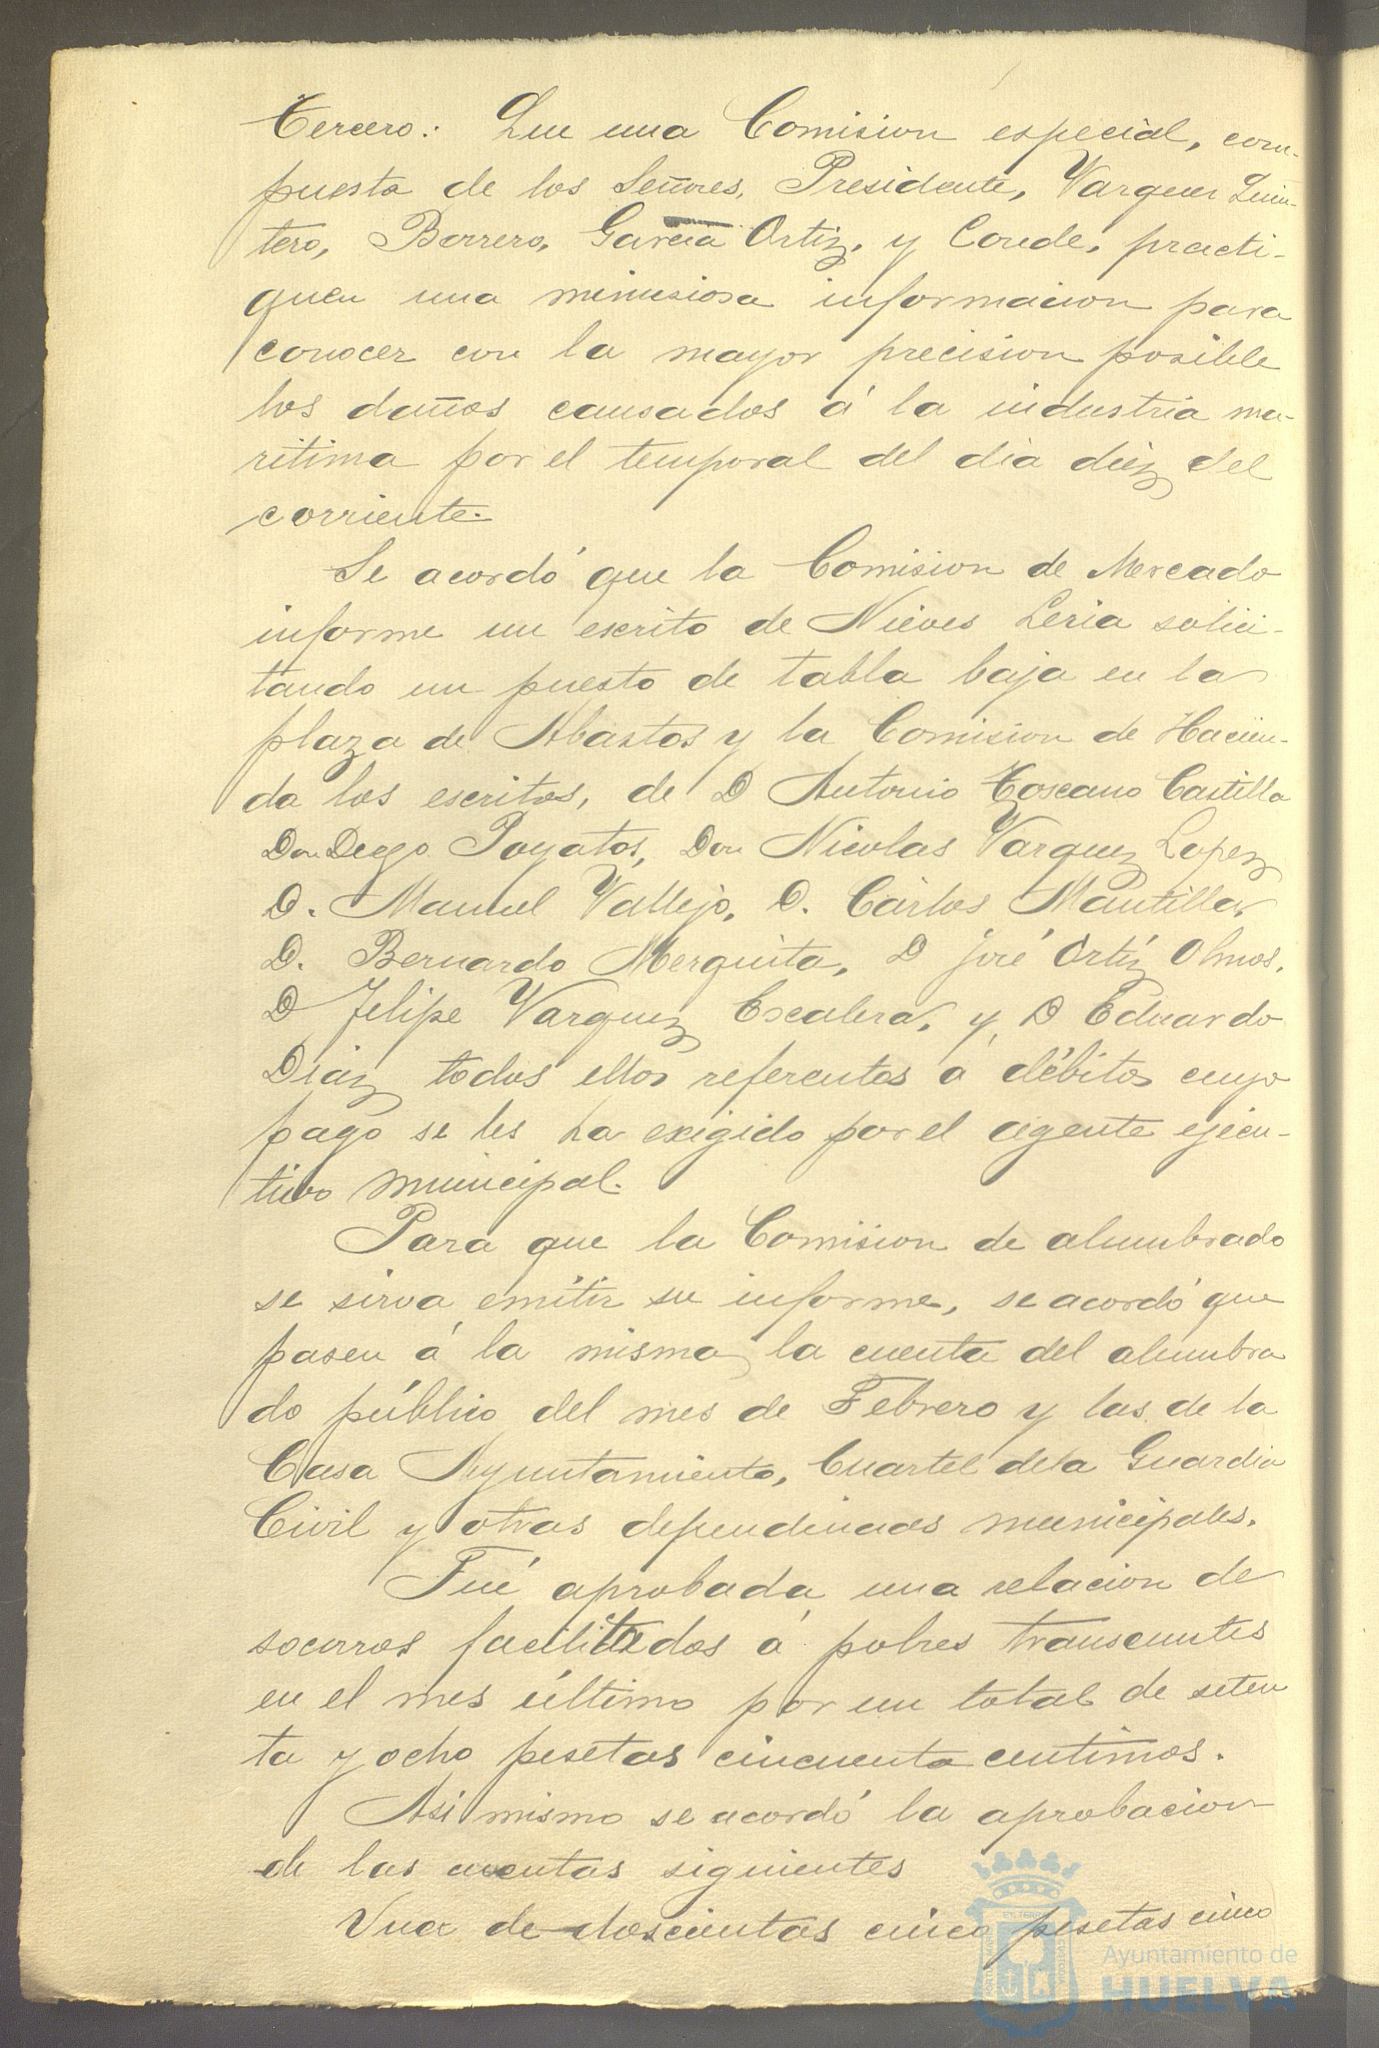 Tercero: Que una Comision especial, com-
puesta de los Señores, Presidente, Vazquez Quin-
tero, Borrero, Garcia Ortiz, y Conde, practi-
quen una minusiosa informacion para
conocer con la mayor precision posible
los daños causados á la industria ma-
ritima por el temporal del dia diez del
corriente.
Se acordó que la Comision de Mercado
informe un escrito de Nieves Leria solici-
tando un puesto de tabla baja en la
plaza de Abastos y la Comision de Hacien-
da los escritos, de D Antonio Toscano Castilla
Don Diego Poyatos, Don Nicolas Vazquez Lopez
D. Manuel Vallejo, D. Cárlos Mantilla,
D. Bernardo Merquita, D José Ortíz Olmos,
D Felipe Vazquez Escalera, y D Eduardo
Diaz todos ellos referentes á débitos cuyo
pago se les ha exigido por el agente ejecu-
tivo municipal.
Para que la Comision de alumbrado
se sirva emitir su informe, se acordó que
pasen á la misma la cuenta del alumbra
do público del mes de Febrero y las de la
Casa Ayuntamiento, Cuartel dela Guardia
Civil y otras dependencias municipales.
Fué aprobada una relacion de
socorros facilitados á pobres transeuntes
en el mes último por un total de seten
ta y ocho pesetas cincuenta centimos.
Asi mismo se acordó la aprobacion
de las cuentas siguientes
Una de doscientas cinco pesetas cinco
Ayuntamiento de
HUELVA